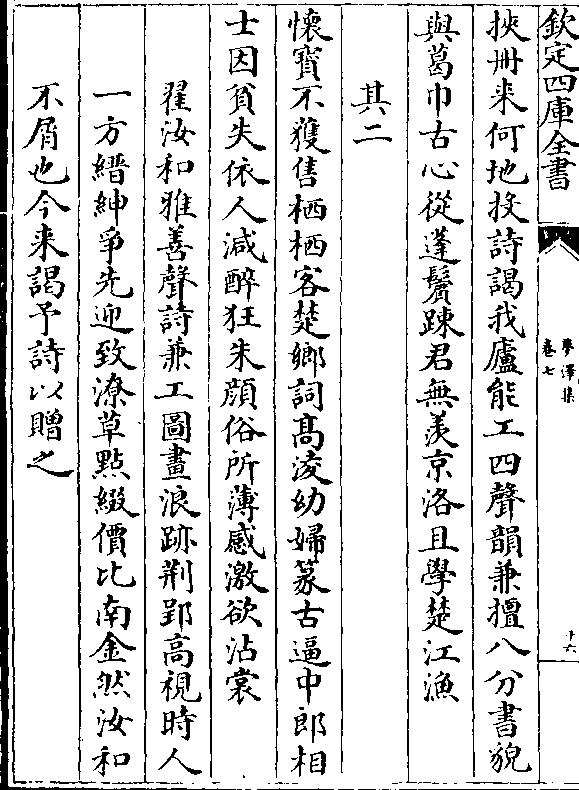 欽定四庫全書
夢澤集
卷七
十六
挾冊来何地投詩謁我廬能工四聲韻兼擅八分書貌
與葛巾古心從蓬鬢踈君無羨京洛且學楚江漁
其二
懷寳不獲售栖栖客楚鄉詞髙凌幼婦篆古逼中郎相
士因貧失依人減醉狂朱顔俗所薄感激欲沾裳
翟汝和雅善聲詩兼工圖畫浪跡荆郢高視時人
一方縉紳爭先迎致潦草點綴價比南金然汝和
不屑也今来謁予詩以贈之